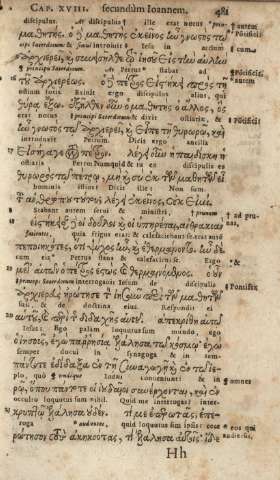 CAP. XVIII. secundùm Ioannem. 481
discipulus. Ille erat notus
μαθητής. ὁ μαθητὴς ἐκεῖνος ἦν γνωστὸς τῷ
simul introiuit Iesu in atrium
ἀρχιερεῖ, καὶ συνεισῆλθε τῷ Ἰησοῦ εἰς τὴν αὐλὴν
Petrus stabat ad
τοῦ ἀρχιερέως. ὁ πέτρος εἱστήκει πρὸς τῇ
ostium foris Exiuit ergo discipulus
θύρᾳ ἔξω. ἐξῆλθεν οὖν ὁ μαθητὴς ὁ ἄλλος, ὃς
erat notus dixit ostiariæ &
τῷ ἀρχιερεῖ, καὶ εἶπε τῇ θυρωρῷ, καὶ
introduxit Petrum. Dicit ergo ancilla
εἰσήγαγε πέτρον. λέγει οὖν ἡ παιδίσκη ἡ
ostiaria Petro Nunquid & tu ex discipulis
θυρωρὸς τῷ πέτρῳ, μὴ καὶ σὺ ἐκ τῶν μαθητῶν εἶ
hominis istius? Dicit ille: Non sum.
τοῦ ἀνθρώπου τούτου; λέγει ἐκεῖνος, οὐκ εἰμί.
Stabant autem serui & ministri,
εἱστήκεισαν οἱ δοῦλοι καὶ οἱ ὑπηρέται, ἀνθρακιὰν
quia frigus erat & calefaciebant
πεποιηκότες, ὅτι ψύχος ἦν, καὶ ἐθερμαίνοντο.
Petrus stans & calefaciens se. Ergo
μετ' αὐτῶν ὁ πέτρος ἑστὼς καὶ θερμαινόμενος. ὁ οὖν
interrogauit Iesum de discipulis
ἀρχιερεὺς ἠρώτησε τὸν Ἰησοῦν περὶ τῶν μαθητῶν
& de doctrina eius. Respondit ei
αὐτοῦ, καὶ περὶ τῆς διδαχῆς αὐτοῦ. ἀπεκρίθη αὐτῷ
Iesus: Ego palam loquutus sum mundo, ego
ὁ Ἰησοῦς, ἐγὼ παρρησίᾳ ἐλάλησα τῷ κόσμῳ, ἐγὼ
semper docui in synagoga & in tem-
πάντοτε ἐδίδαξα ἐν τῇ συναγωγῇ, καὶ ἐν τῷ ἱε-
plo, quò Iudæi conueniunt: & in
ρῷ, ὅπου πάντοτε οἱ ἰουδαῖοι συνέρχονται, καὶ ἐν
occulto loquutus sum nihil. Quid me interrogas? inter-
κρυπτῷ ἐλάλησα οὐδέν. τί με ἐρωτᾷς; ἐπε-
roga quid loquutus sum ipsis: ecce
ρώτησον τοὺς ἀκηκοότας, τί ἐλάλησα αὐτοῖς. ἴδε
Hh